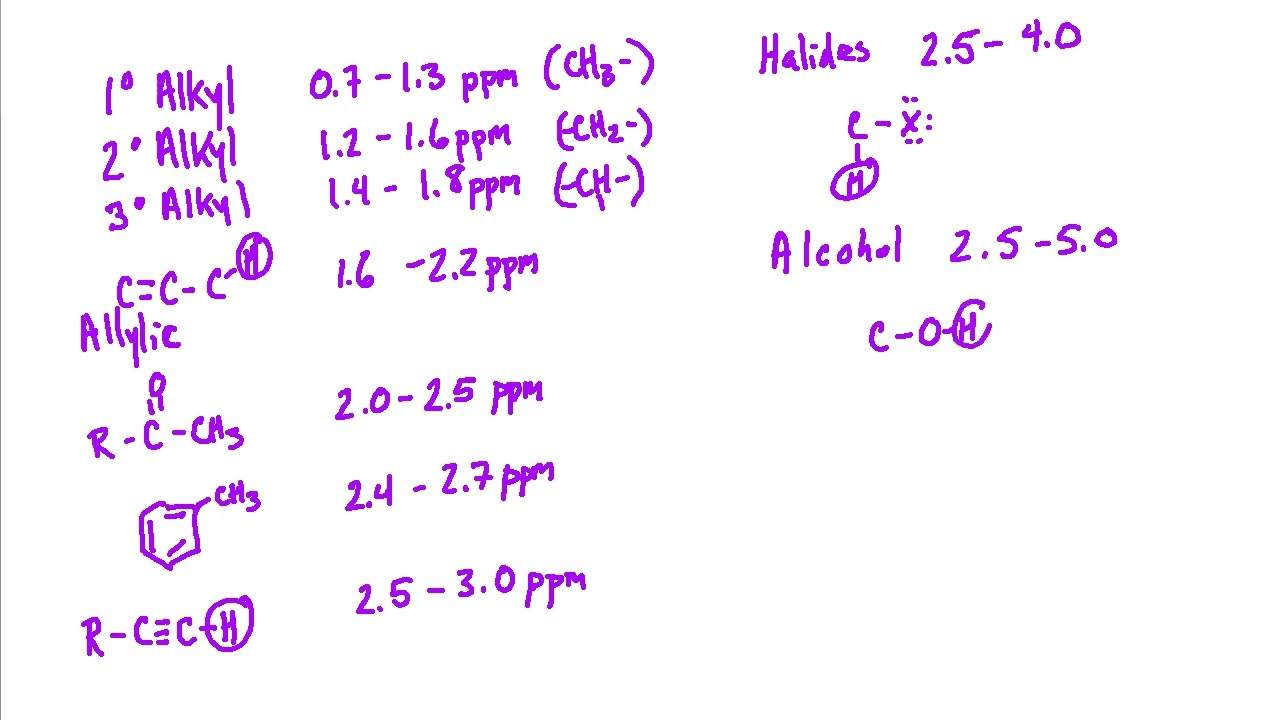 1° Alkyl 0.7 - 1.3 ppm (CH3-)
2° Alkyl 1.2 - 1.6 ppm (-CH2-)
3° Alkyl 1.4 - 1.8 ppm (-CH-)
C=C-C-H 1.6 - 2.2 ppm
Allylic
O
R-C-CH3 2.0 - 2.5 ppm
CH3 2.4 - 2.7 ppm
R-C≡C-H 2.5 - 3.0 ppm
Halides 2.5 - 4.0
C-X:
H
Alcohol 2.5 - 5.0
C-O-H